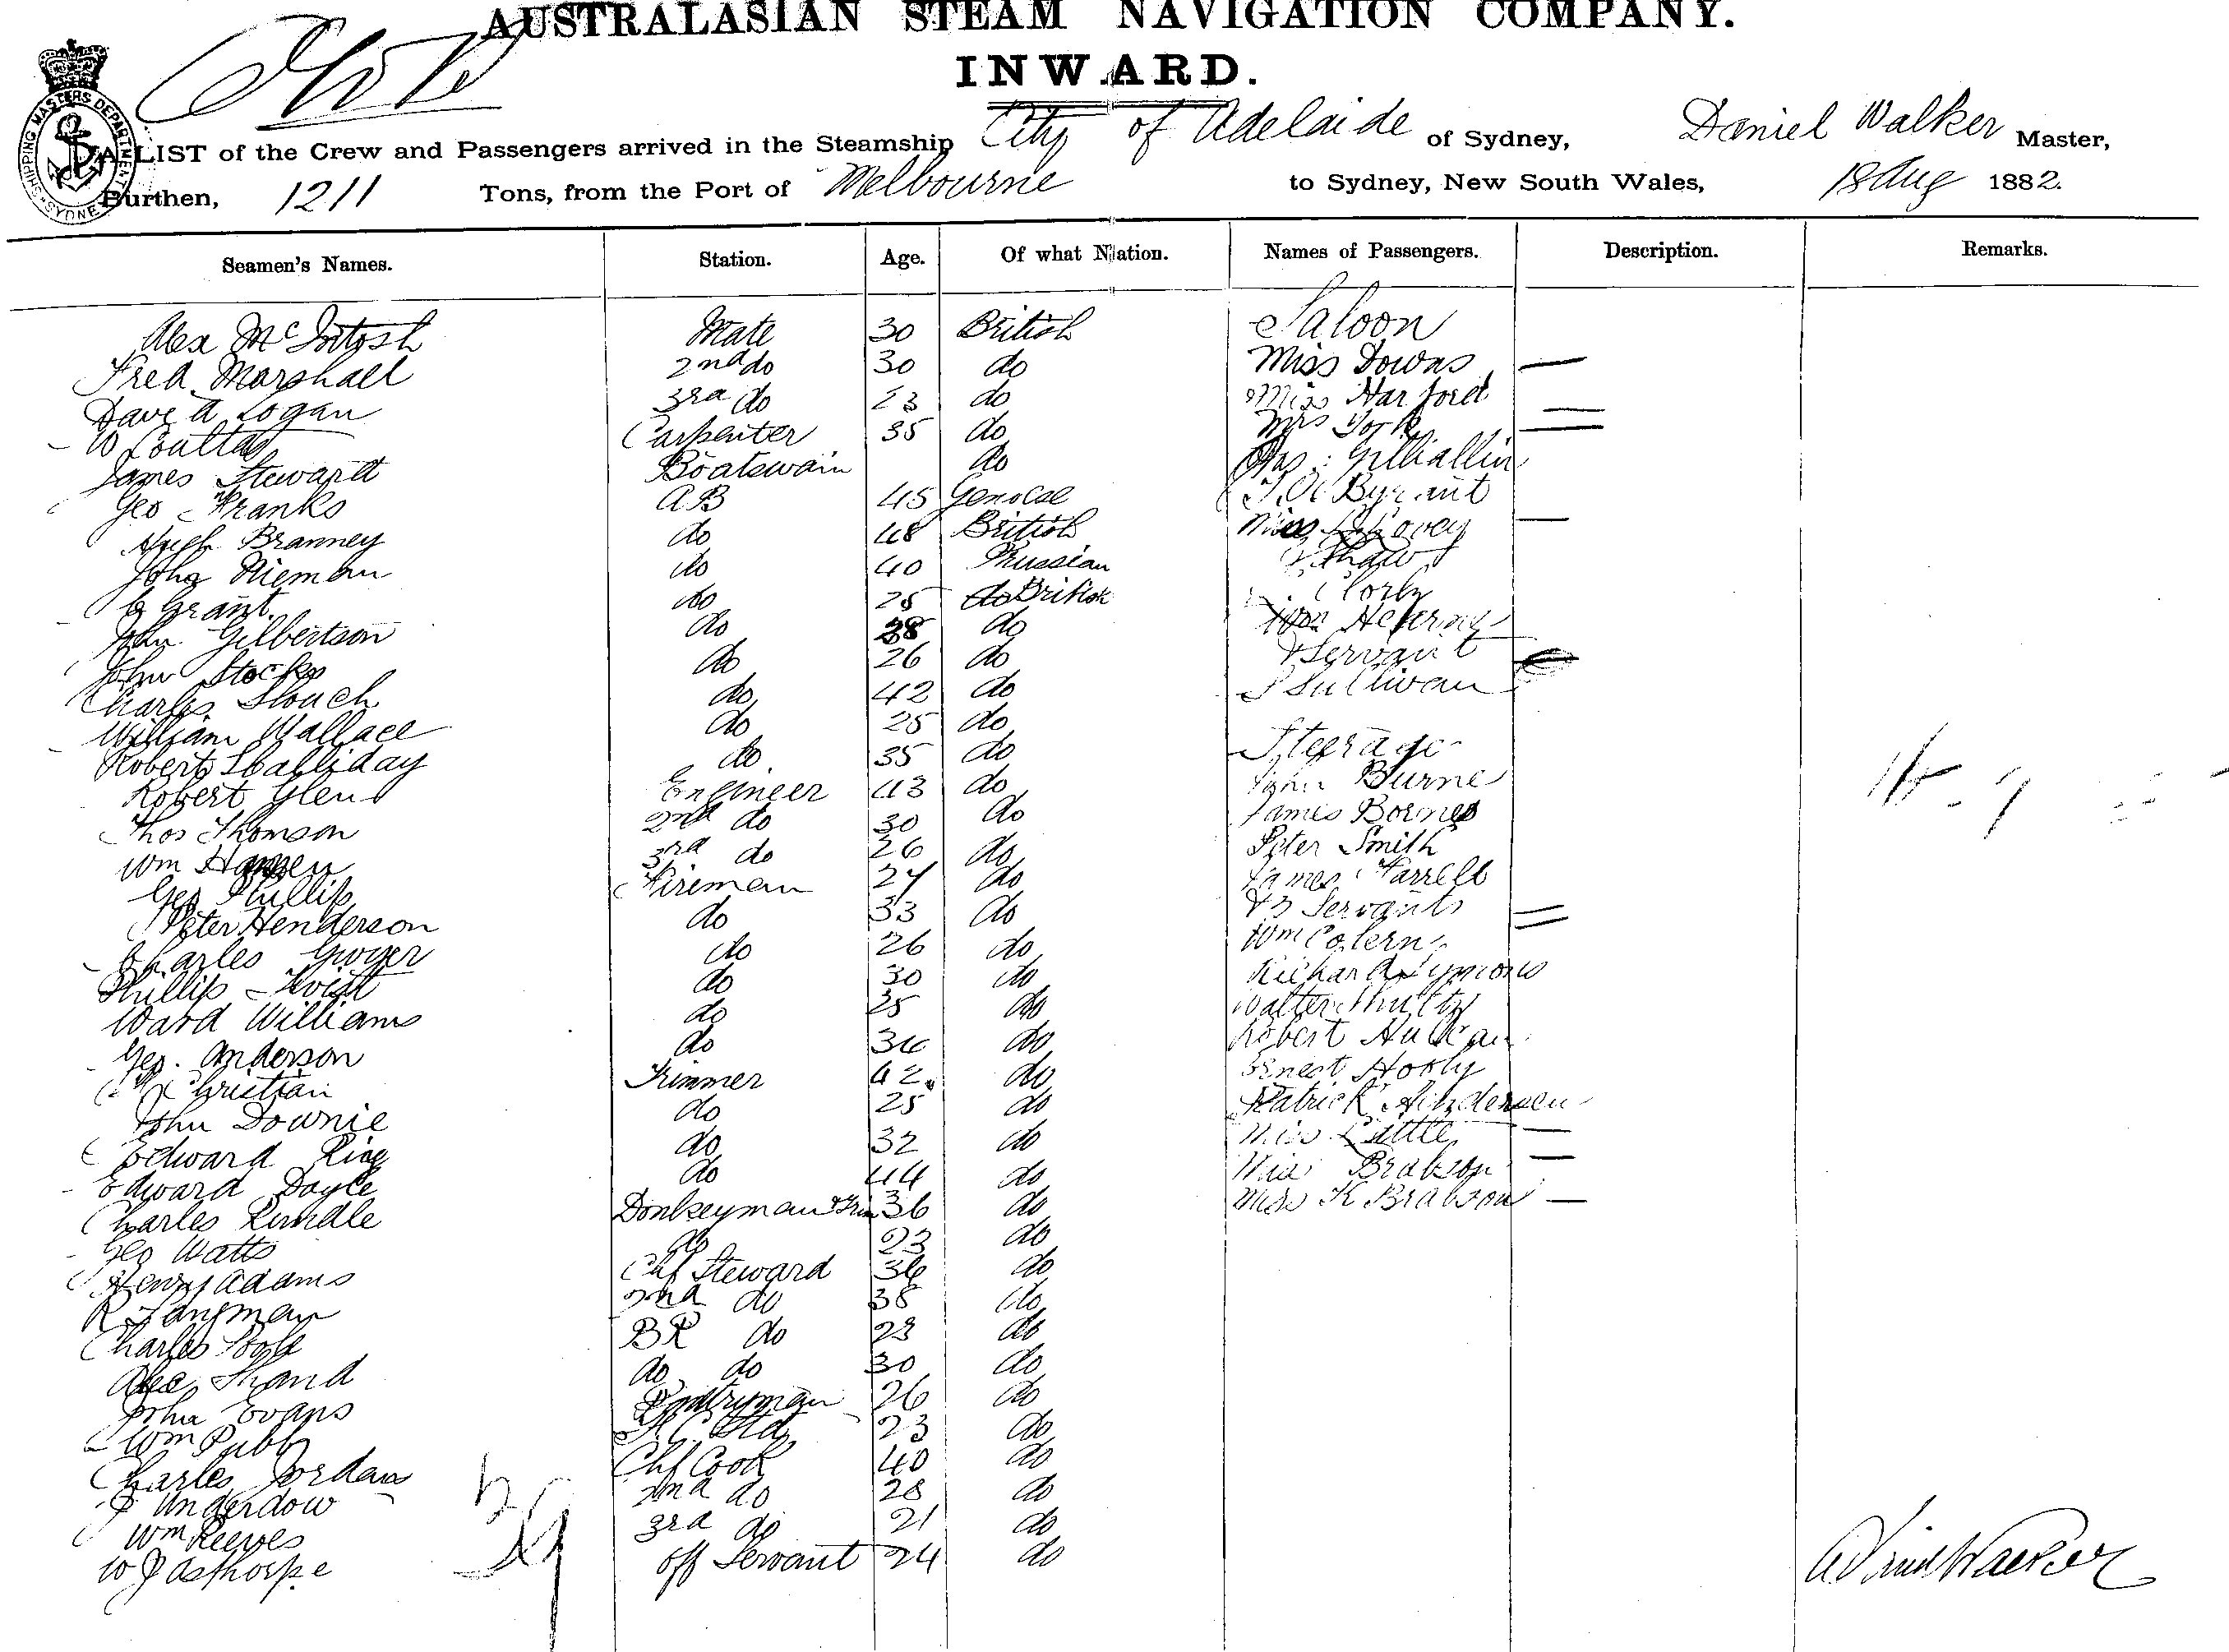 AUSTRALASIAN STEAM NAVIGATION COMPANY.
INWARD.
SHIPPING MASTERS DEPARTMENT SYDNEY
A LIST of the Crew and Passengers arrived in the Steamship City of Adelaide of Sydney, Daniel Walker Master,
Burthen, 1211 Tons, from the Port of Melbourne to Sydney, New South Wales, 18 Aug 1882.
Seamen's Names. Station. Age. Of what Nation. Names of Passengers. Description. Remarks.
Alex McIntosh Mate 30 British Saloon
Fred Marshall 2nd do 30 do Miss Downs
Dave A Logan 3rd do 23 do Miss Harford
W Coultas Carpenter 35 do Mrs York
James Steward Boatswain do
Geo Franks AB 45
Hugh Branney do 48 British Miss
John Nieman do 40 Prussian
G Grant do 25 do British
John Gilbertson do 38 do
John Stocks do 26 do & Servant
Charles Slouch do 42 do Sullivan
William Wallace do 25 do
Robert Halliday do 35 do Steerage
Robert Glen Engineer 43 do John Burne
Thos Thomson 2nd do 30 do James
Wm 3rd do 26 do Peter Smith
Geo Phillips Fireman 27 do James Farrell
Peter Henderson do 33 do & 3 Servants
Charles Gwyer do 26 do Wm
Phillip do 30 do Richard Symons
Ward Williams do 25 do Walter Shultz
Geo. Anderson do 34 do Robert
Christian Trimmer 42 do Ernest
John Downie do 25 do Patrick
Edward King do 32 do Miss Little
Edward Doyle do 44 do Miss Brabson
Charles Rundle Donkeyman & Trim 36 do Miss K Brabson
Geo Watts do 23 do
Henry Adams Chf Steward 36 do
R Langman 2nd do 38 do
Charles BR do 23 do
Alex Shand do do 30 do
John Evans Pantryman 26 do
Wm Pubb 23 do
Charles Jordan Chf Cook 40 do
Underdow 2nd do 28 do
Wm Reeves 3rd do 21 do
W J Asthorpe Off Servant 24 do
39
Daniel Walker